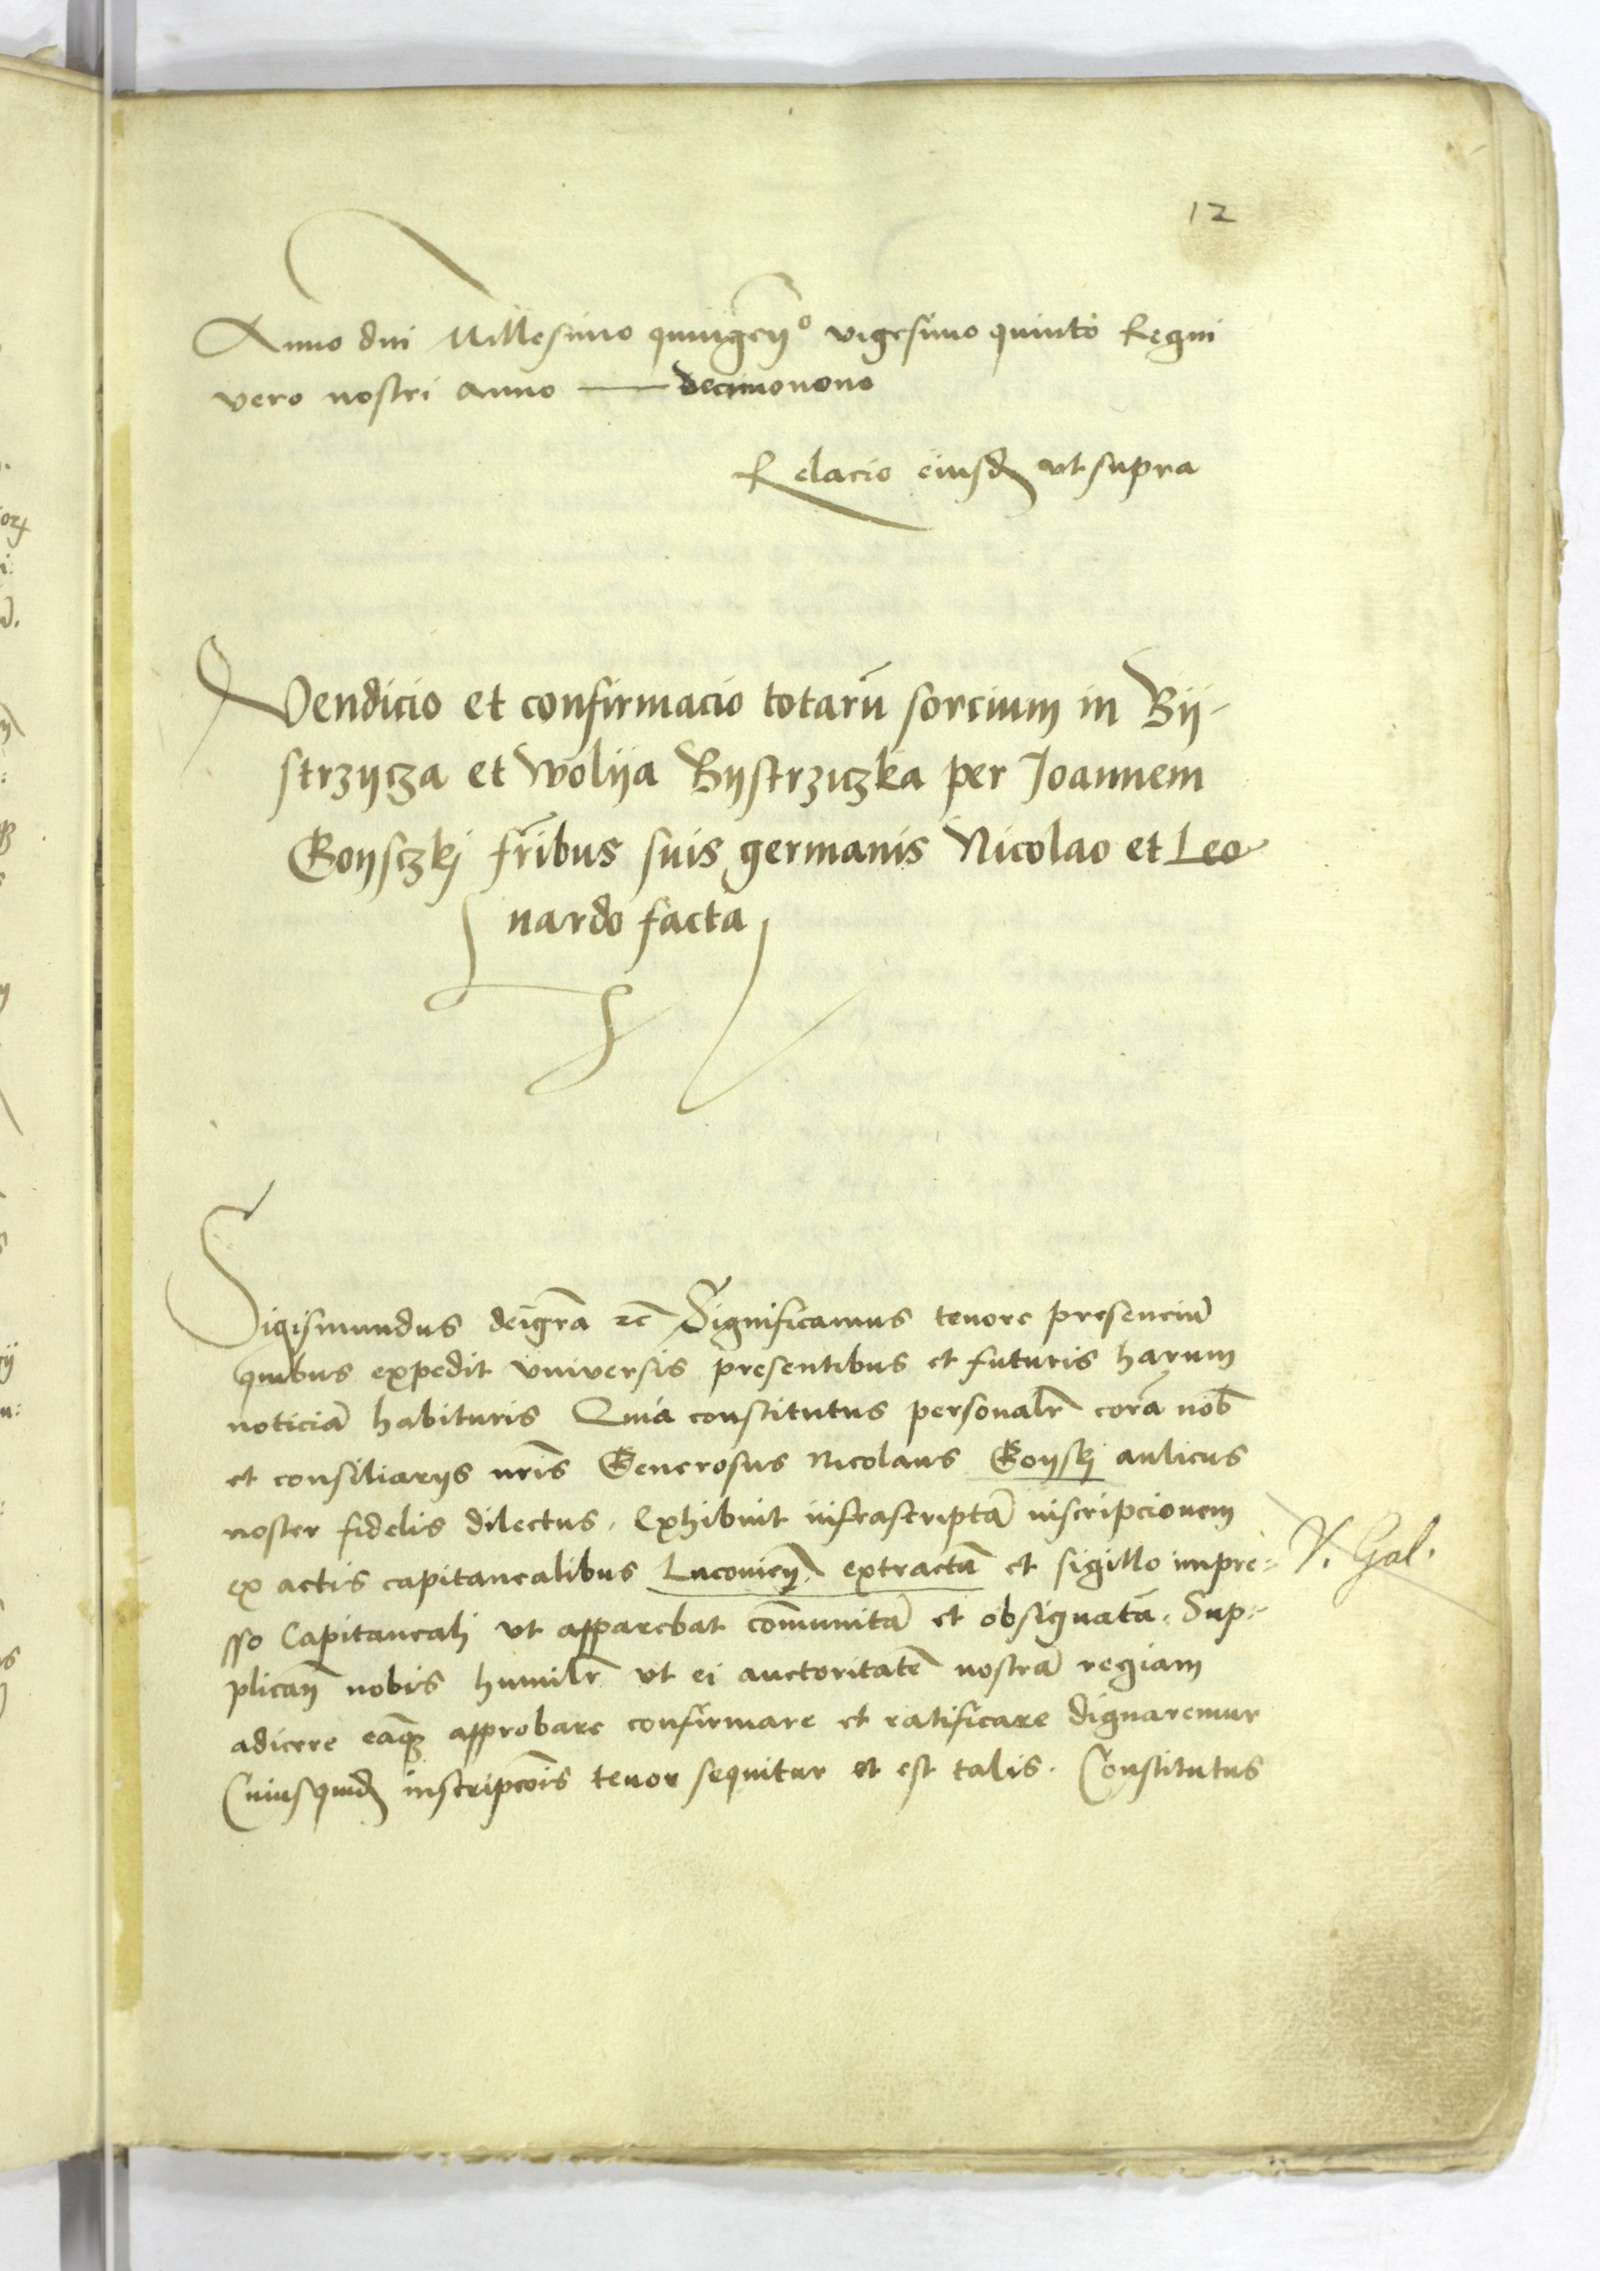 12
Anno dni Millesimo quingenͫo vigesimo quinto Regni
vero nostri anno — decimonono
Relacio eiusdꝫ ut supra
Vendicio et confirmacio totarū sorcium in Bÿ-
strzÿcza et Wolÿa Bÿstrziczka per Joannem
Goÿsczkj fr̄ibus suis germanis Nicolao et Leo
nardo facta
Sigismundus dei gr̄a ꝛc̄ Significamus tenore presenciū
quibus expedit universis presentibus et futuris harum
noticiā habituris Quia constitutus personalr̄ corā nob̄
et consiliarÿs nr̄is Generosus Nicolaus Goÿskj aulicus
noster fidelis dilectus. Exhibuit infrascriptā inscripcionem
ex actis capitanealibus Lucovieñ extractā et sigillo impre-
sso Capitaneali ut apparebat com̄unitā et obsignatā. Sup-
plicañ nobis humilr̄ ut ei auctoritatē nostrā regiam
adicere eāqꝫ approbare confirmare et ratificare dignaremur
Cuiusquidꝫ inscripcōis tenor sequitur et est talis. Constitutus
V. Gal.